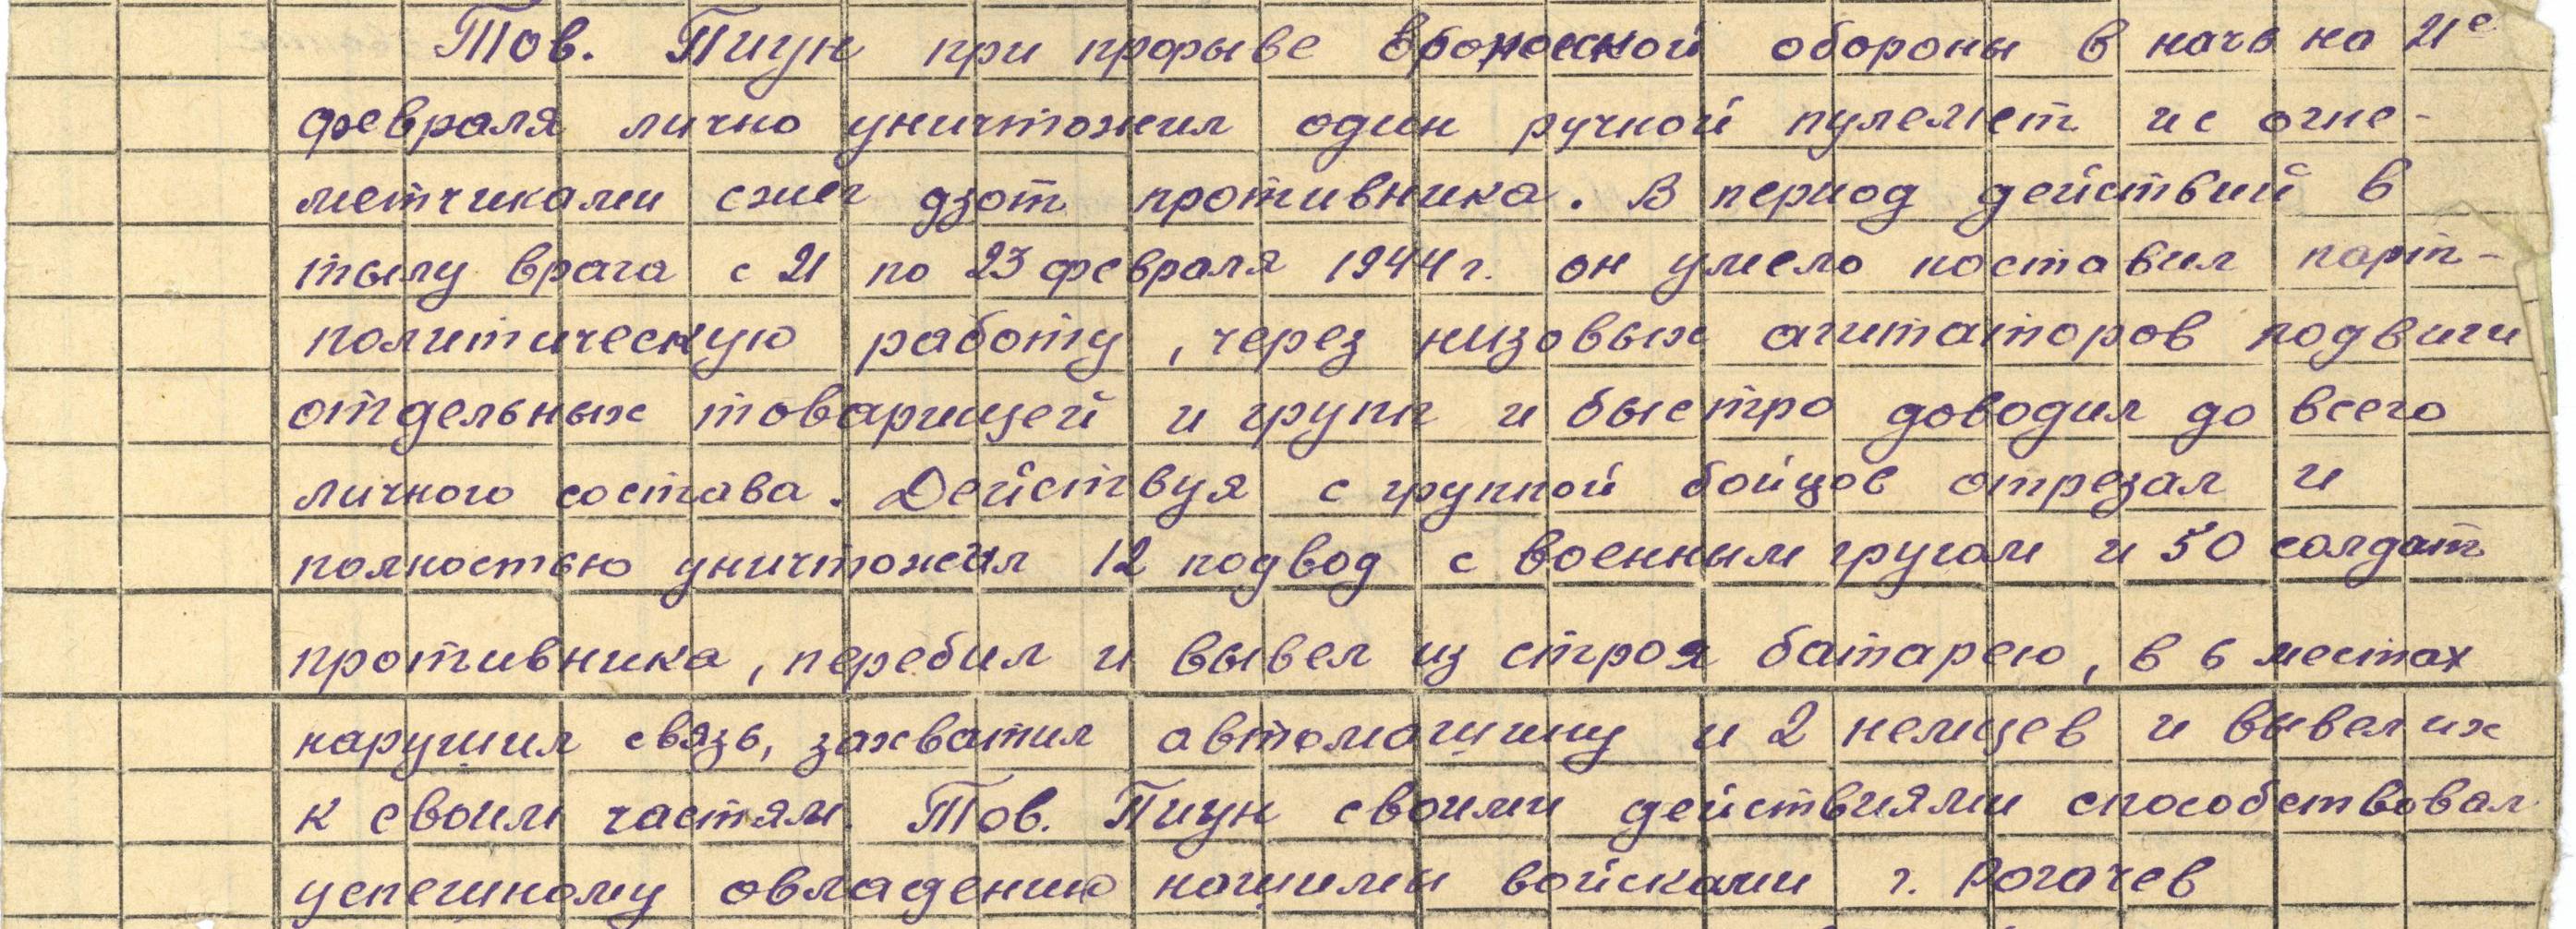 Тов. Пигун при прорыве вражеской обороны в ночь на 21е
февраля лично уничтожил один ручной пулемет и с огне-
метчиками сжег дзот противника. В период действий в
тылу врага с 21 по 23 февраля 1944 г. он умело поставил парт-
политическую работу, через низовых агитаторов подвиги
отдельных товарищей и групп и быстро доводил до всего
личного состава. Действуя с группой бойцов отрезал и
полностью уничтожил 12 подвод с военным грузом и 50 солдат
противника, перебил и вывел из строя батарею, в 6 местах
нарушил связь, захватил автомашину и 2 немцев и вывел их
к своим частям. Тов. Пигун своими действиями способствовал
успешному овладению нашими войсками г. Рогачев